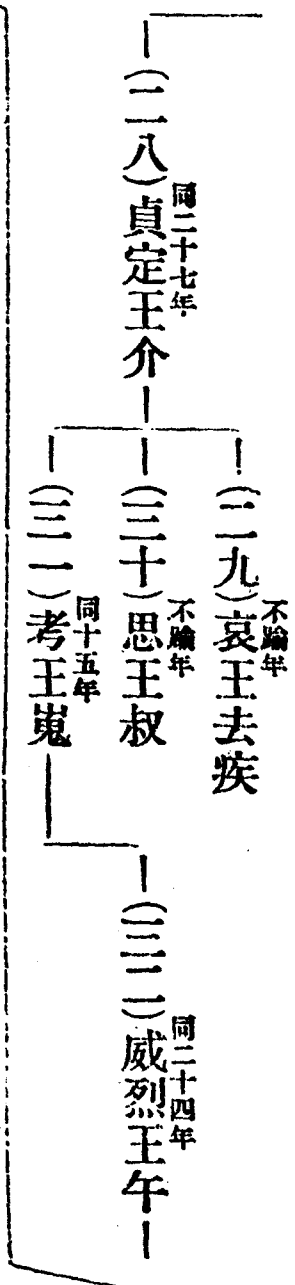 (二八)貞定王介
同二十七年
(二九)哀王去疾
不踰年
(三十)思王叔
不踰年
(三一)考王嵬
同十五年
(三二)威烈王午
同二十四年